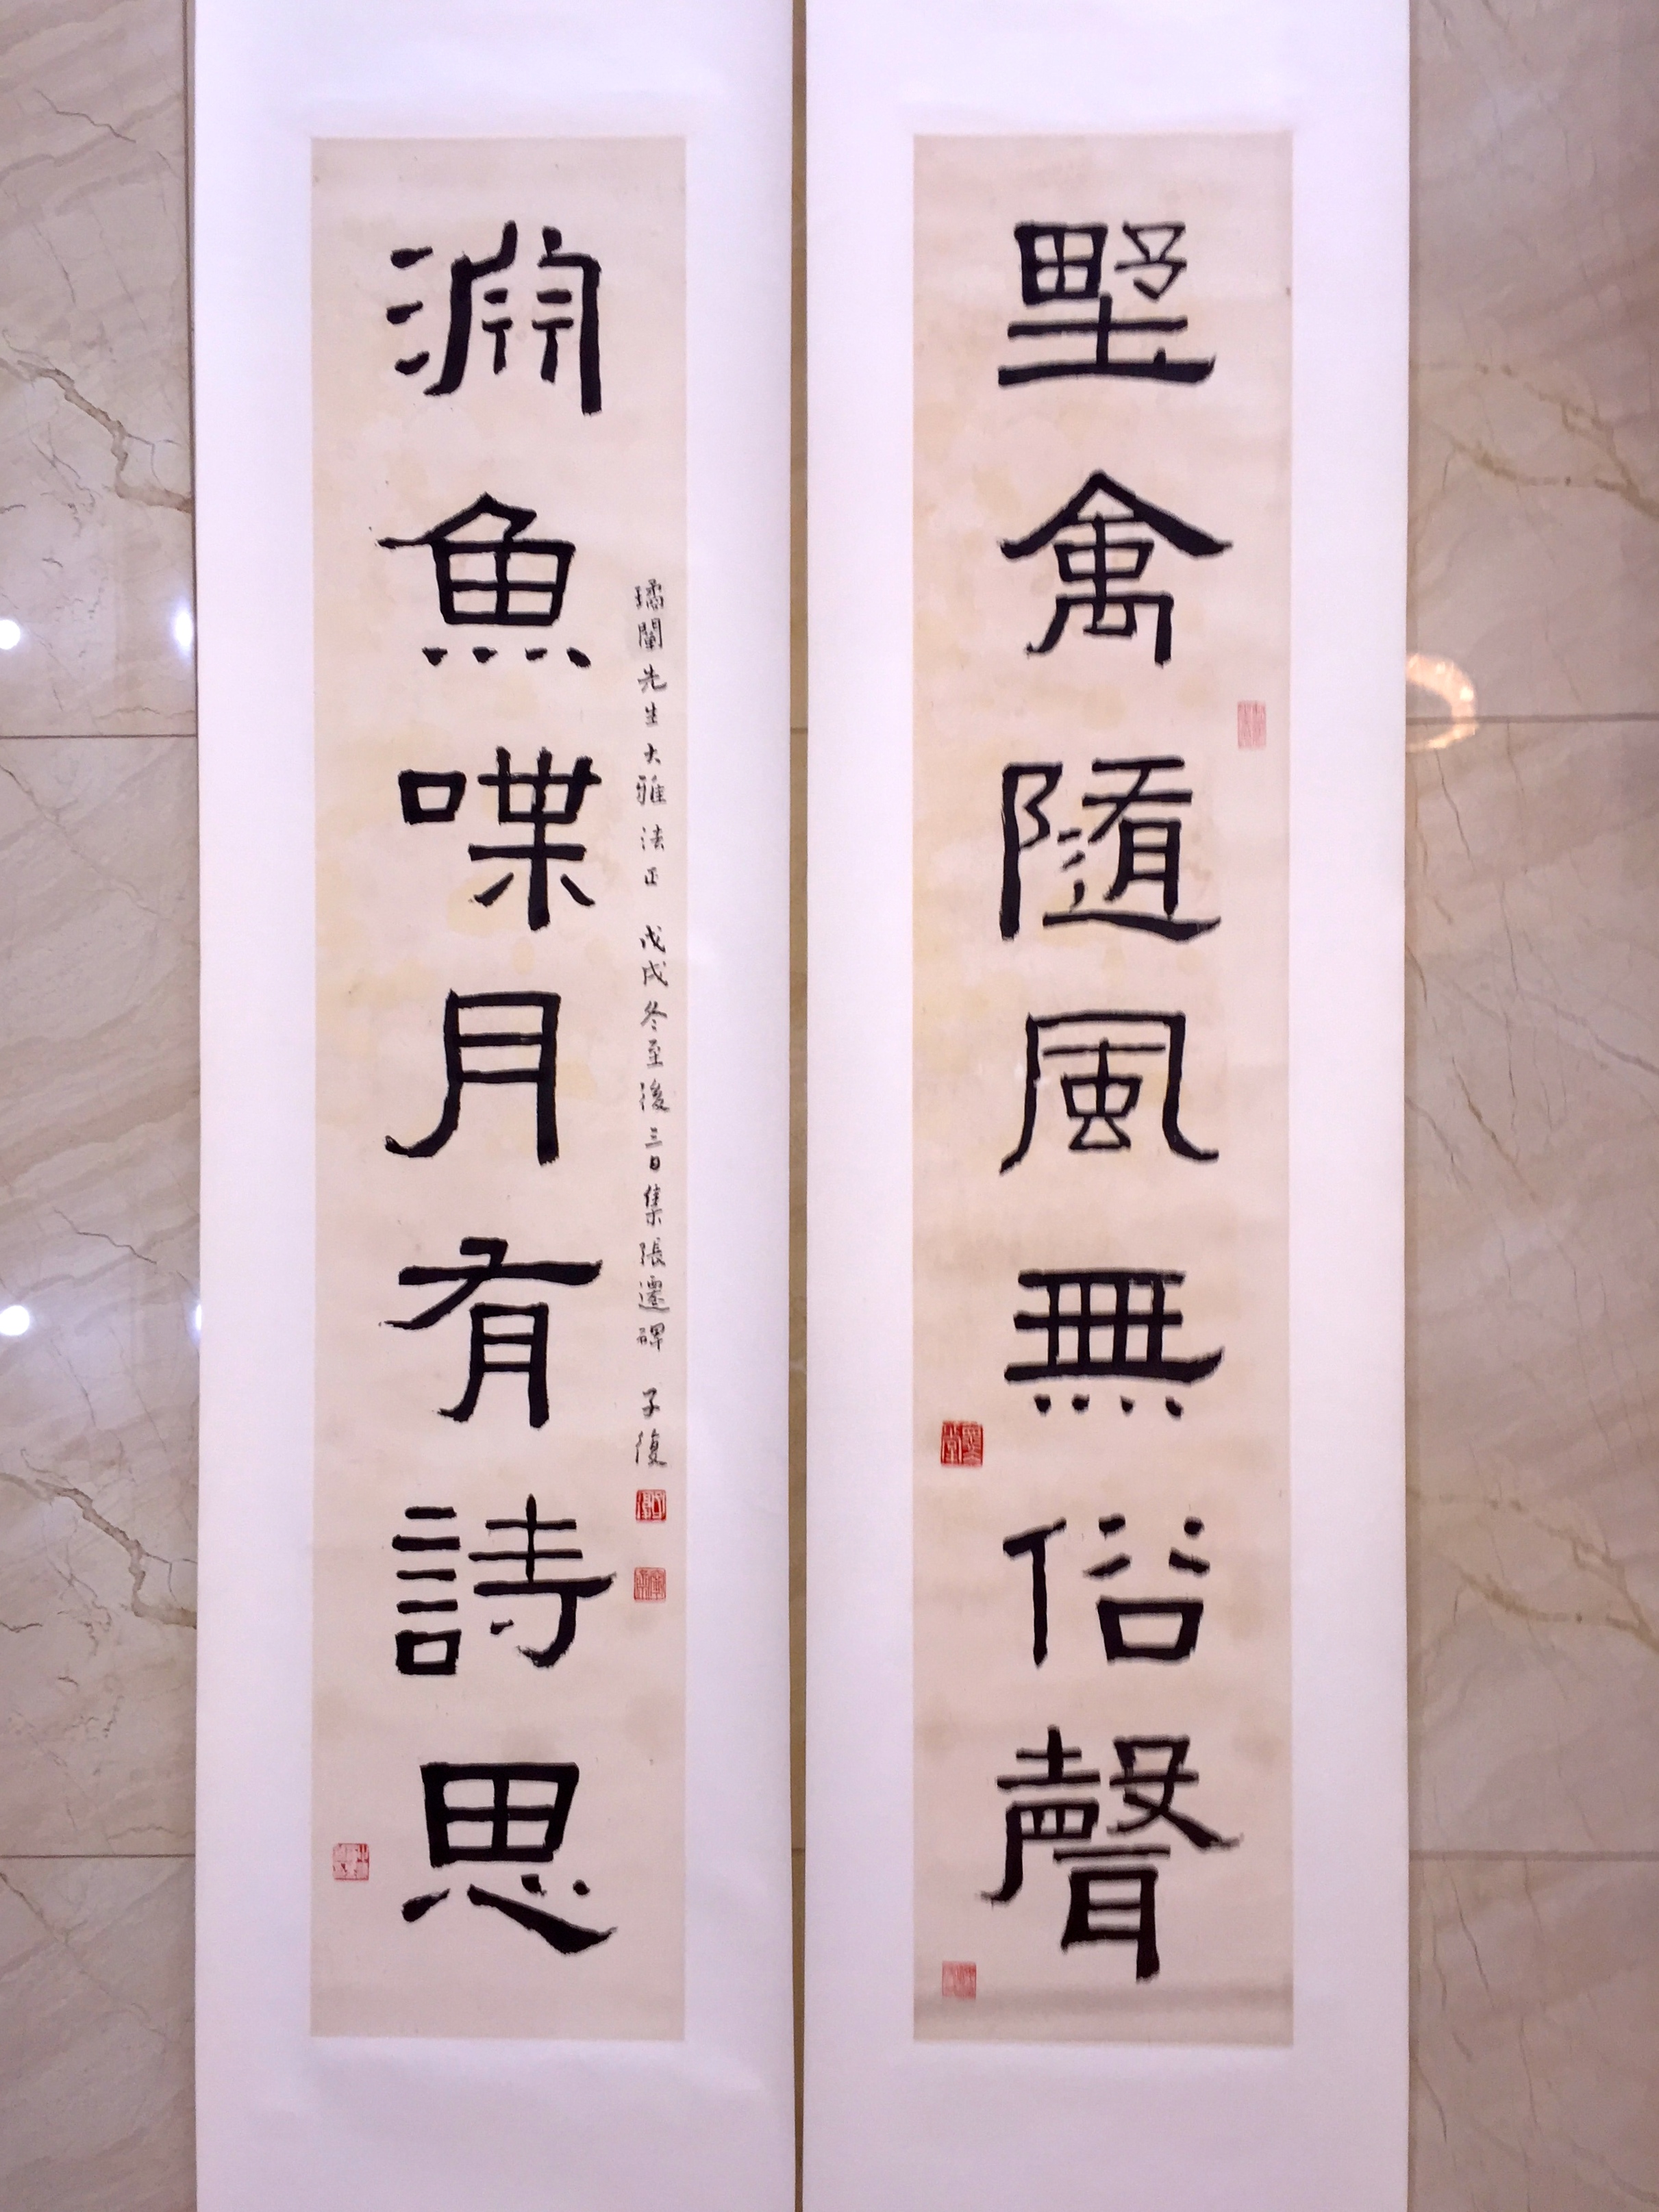 野禽隨風無俗聲
淵魚喋月有詩思
璚闈先生大雅法正 戊戌冬至後三日集張遷碑 子復